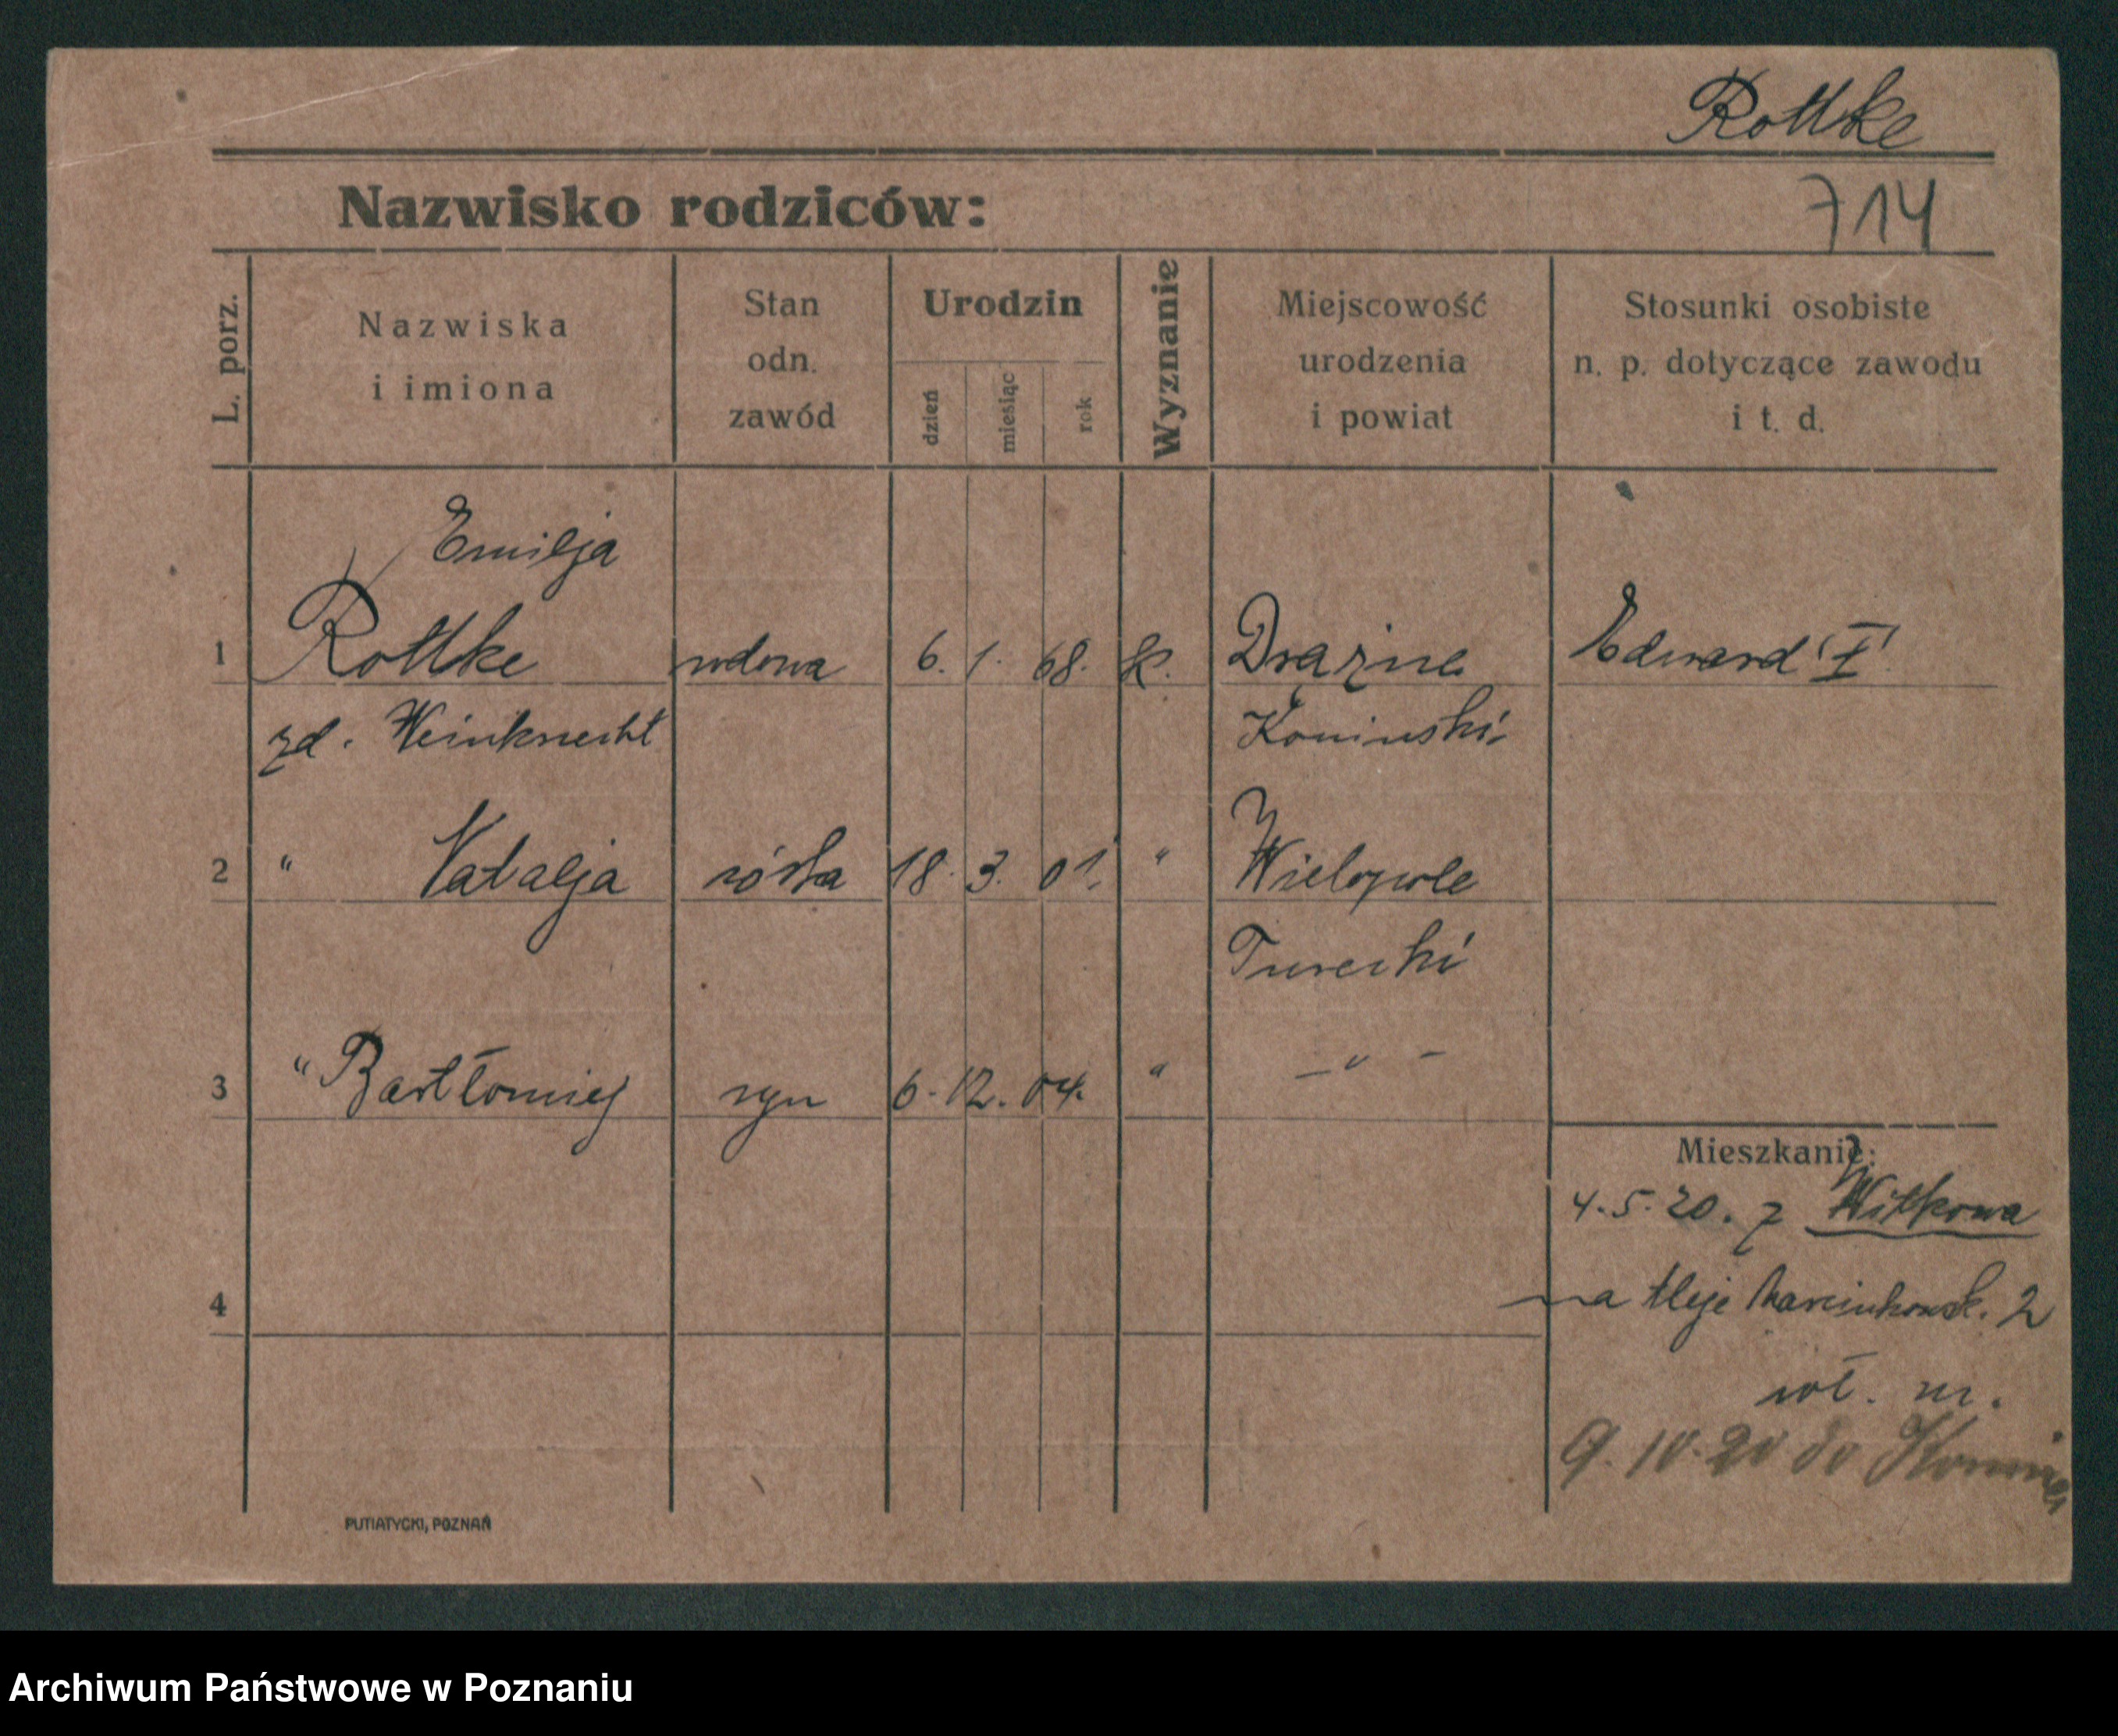 Rottke
Nazwisko rodziców:
714
L. porz.
Nazwiska
i imiona
Stan
odn.
zawód
Urodzin
dzień
miesiąc
rok
Wyznanie
Miejscowość
urodzenia
i powiat
Stosunki osobiste
n. p. dotyczące zawodu
i t. d.
Emilja
1 Rottke wdowa 6. 1. 68. k. Drążno Edward I
zd. Weinknecht Koniński
2 " Natalja córka 18. 3. 01. " Wielopole
Turecki
3 " Bartłomiej syn 6. 12. 04. " — " —
Mieszkanie:
4. 5. 20. z Witkowa
4 na Aleje Marcinkowsk. 2
wł. m.
9. 10. 20 do
PUTIATYCKI, POZNAŃ
Archiwum Państwowe w Poznaniu